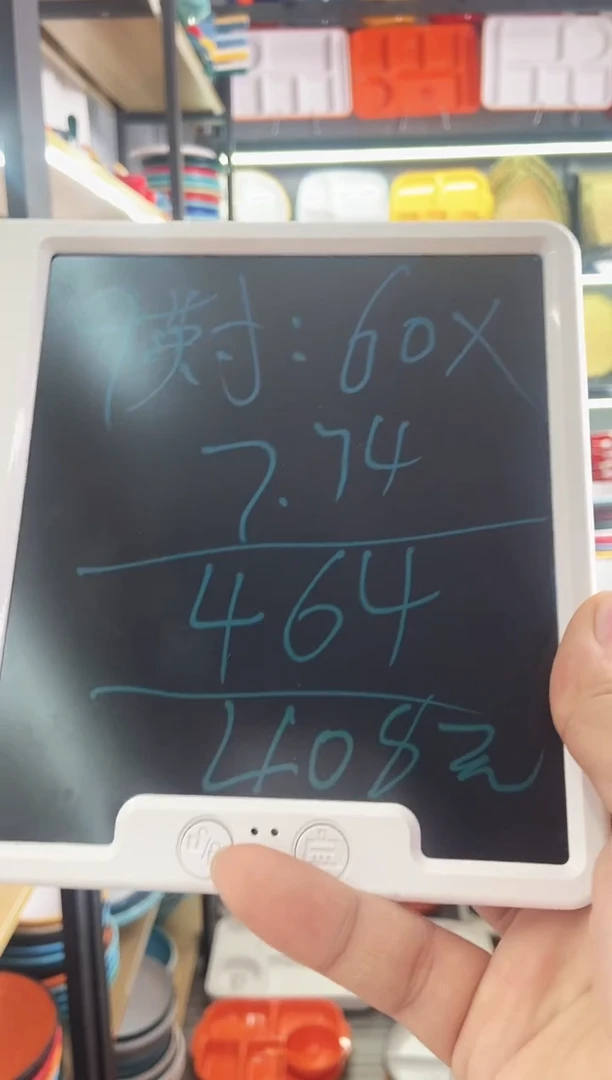 7英寸：60X
7.74
464
408元